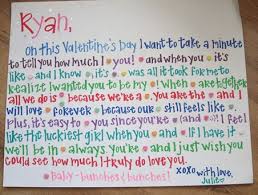 Ryan,
on this Valentine's Day I want to take a minute
to tell you how much I you! and when you it's
like and I know it's was all it took for me to
realize I wanted you to be my! When are together
all we do is because we're a. You are the and I
will love forever because our still feels like
plus, it's easy to you since you're and I feel
like the luckiest girl when you and If I have it
we'll be in always. You're and I just wish you
could see how much I truly do love you.
xoxo
with love,
Julie
baby-bunches & bunches!